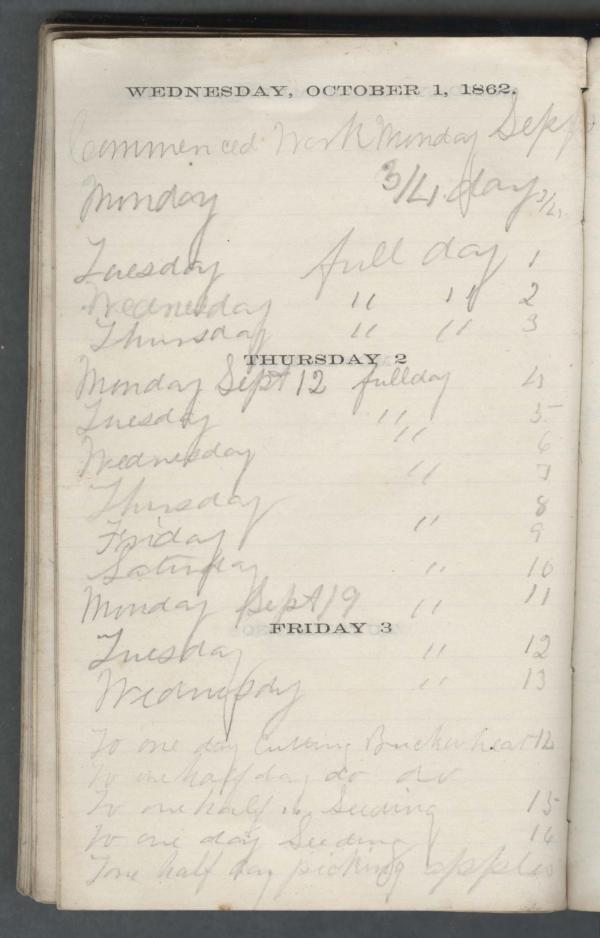 WEDNESDAY, OCTOBER 1, 1862.
Commenced Work Monday Sept
Monday 3/4 day 3/4
Tuesday full day 1
Wednesday " " 2
Thursday " " 3
THURSDAY 2
Monday Sept 12 fullday 4
Tuesday " 5
Wednesday " 6
Thursday " 7
Friday " 8
Saturday " 10
Monday Sept 19 " 11
FRIDAY 3
Tuesday " 12
Wednesday " 13
To one day Cutting Buckwheat 12
To one half day do do
To one half Seeding 15
To one day Seeding 16
one half day picking apples